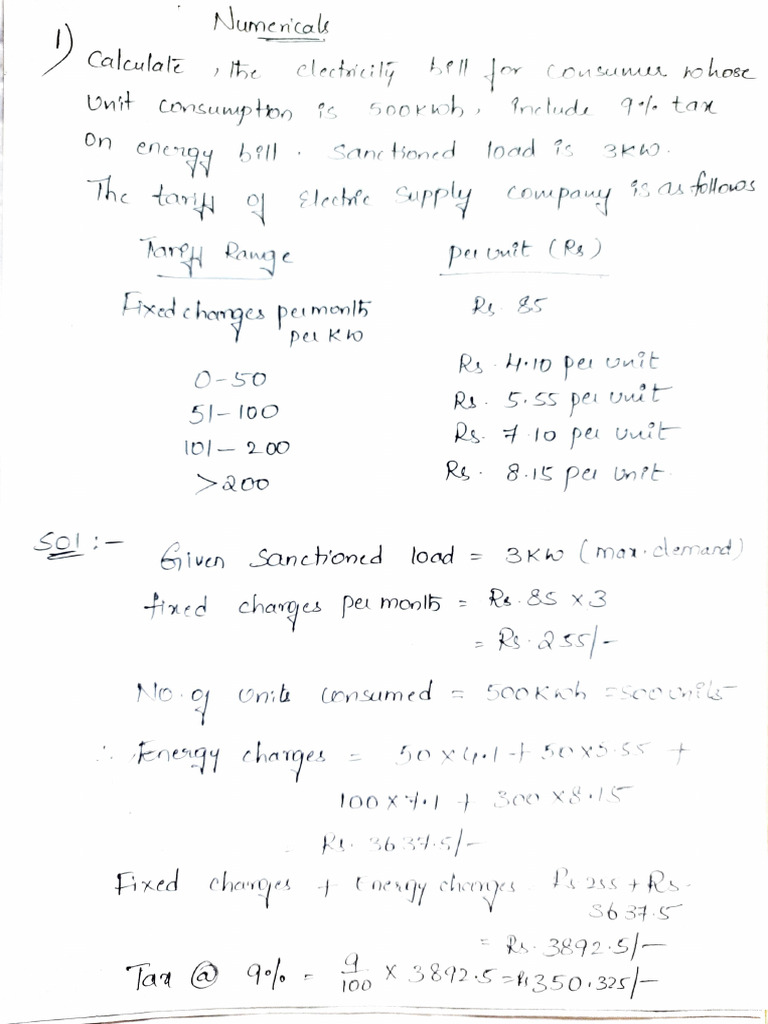 Numericals
1) Calculate, the electricity bill for consumer whose
Unit consumption is 500kwh, include 9% tax
on energy bill. Sanctioned load is 3KW.
The tariff of Electric supply company is as follows
Tariff Range per unit (Rs)
Fixed charges per month Rs. 85
per KW
0-50 Rs. 4.10 per unit
51-100 Rs. 5.55 per unit
101-200 Rs. 7.10 per unit
>200 Rs. 8.15 per unit.
Sol :- Given Sanctioned load = 3KW (max. demand)
fixed charges per month = Rs. 85 × 3
= Rs. 255/-
No. of units consumed = 500Kwh = 500 units
∴ Energy charges = 50 × 4.1 + 50 × 5.55 +
100 × 7.1 + 300 × 8.15
Rs. 3637.5/-
Fixed charges + Energy charges Rs 255 + Rs.
3637.5
= Rs. 3892.5/-
Tax @ 9% = 9/100 × 3892.5 = Rs 350.325/-